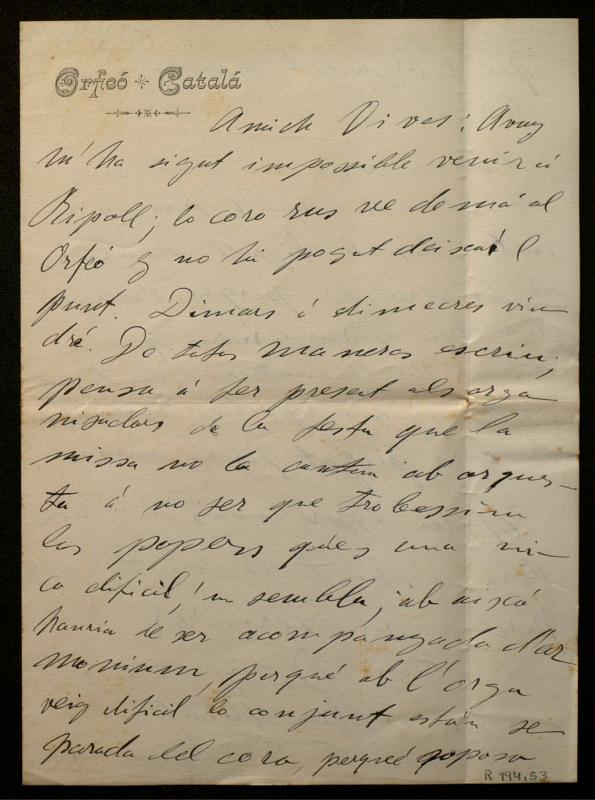 Orfeó Catalá
Amich Vives: Avuy
m'ha sigut impossible venir á
Ripoll; lo coro rus ve demá al
Orfeó y no hi pogut deixar l
punt. Dimars ó dimecres vin
dré. De totas maneras escriu;
pensa á fer present als orga
nisadors de la festa que la
missa no la cantem ab orques-
ta á no ser que trobessim
los papers qu'es una mi
ca dificil, 'm sembla; ab aixó
hauria de ser acompanyada d'ar
monium, perqué ab l'orga
veig dificil lo conjunt están se
parada del coro, perqué suposo
R 194,53